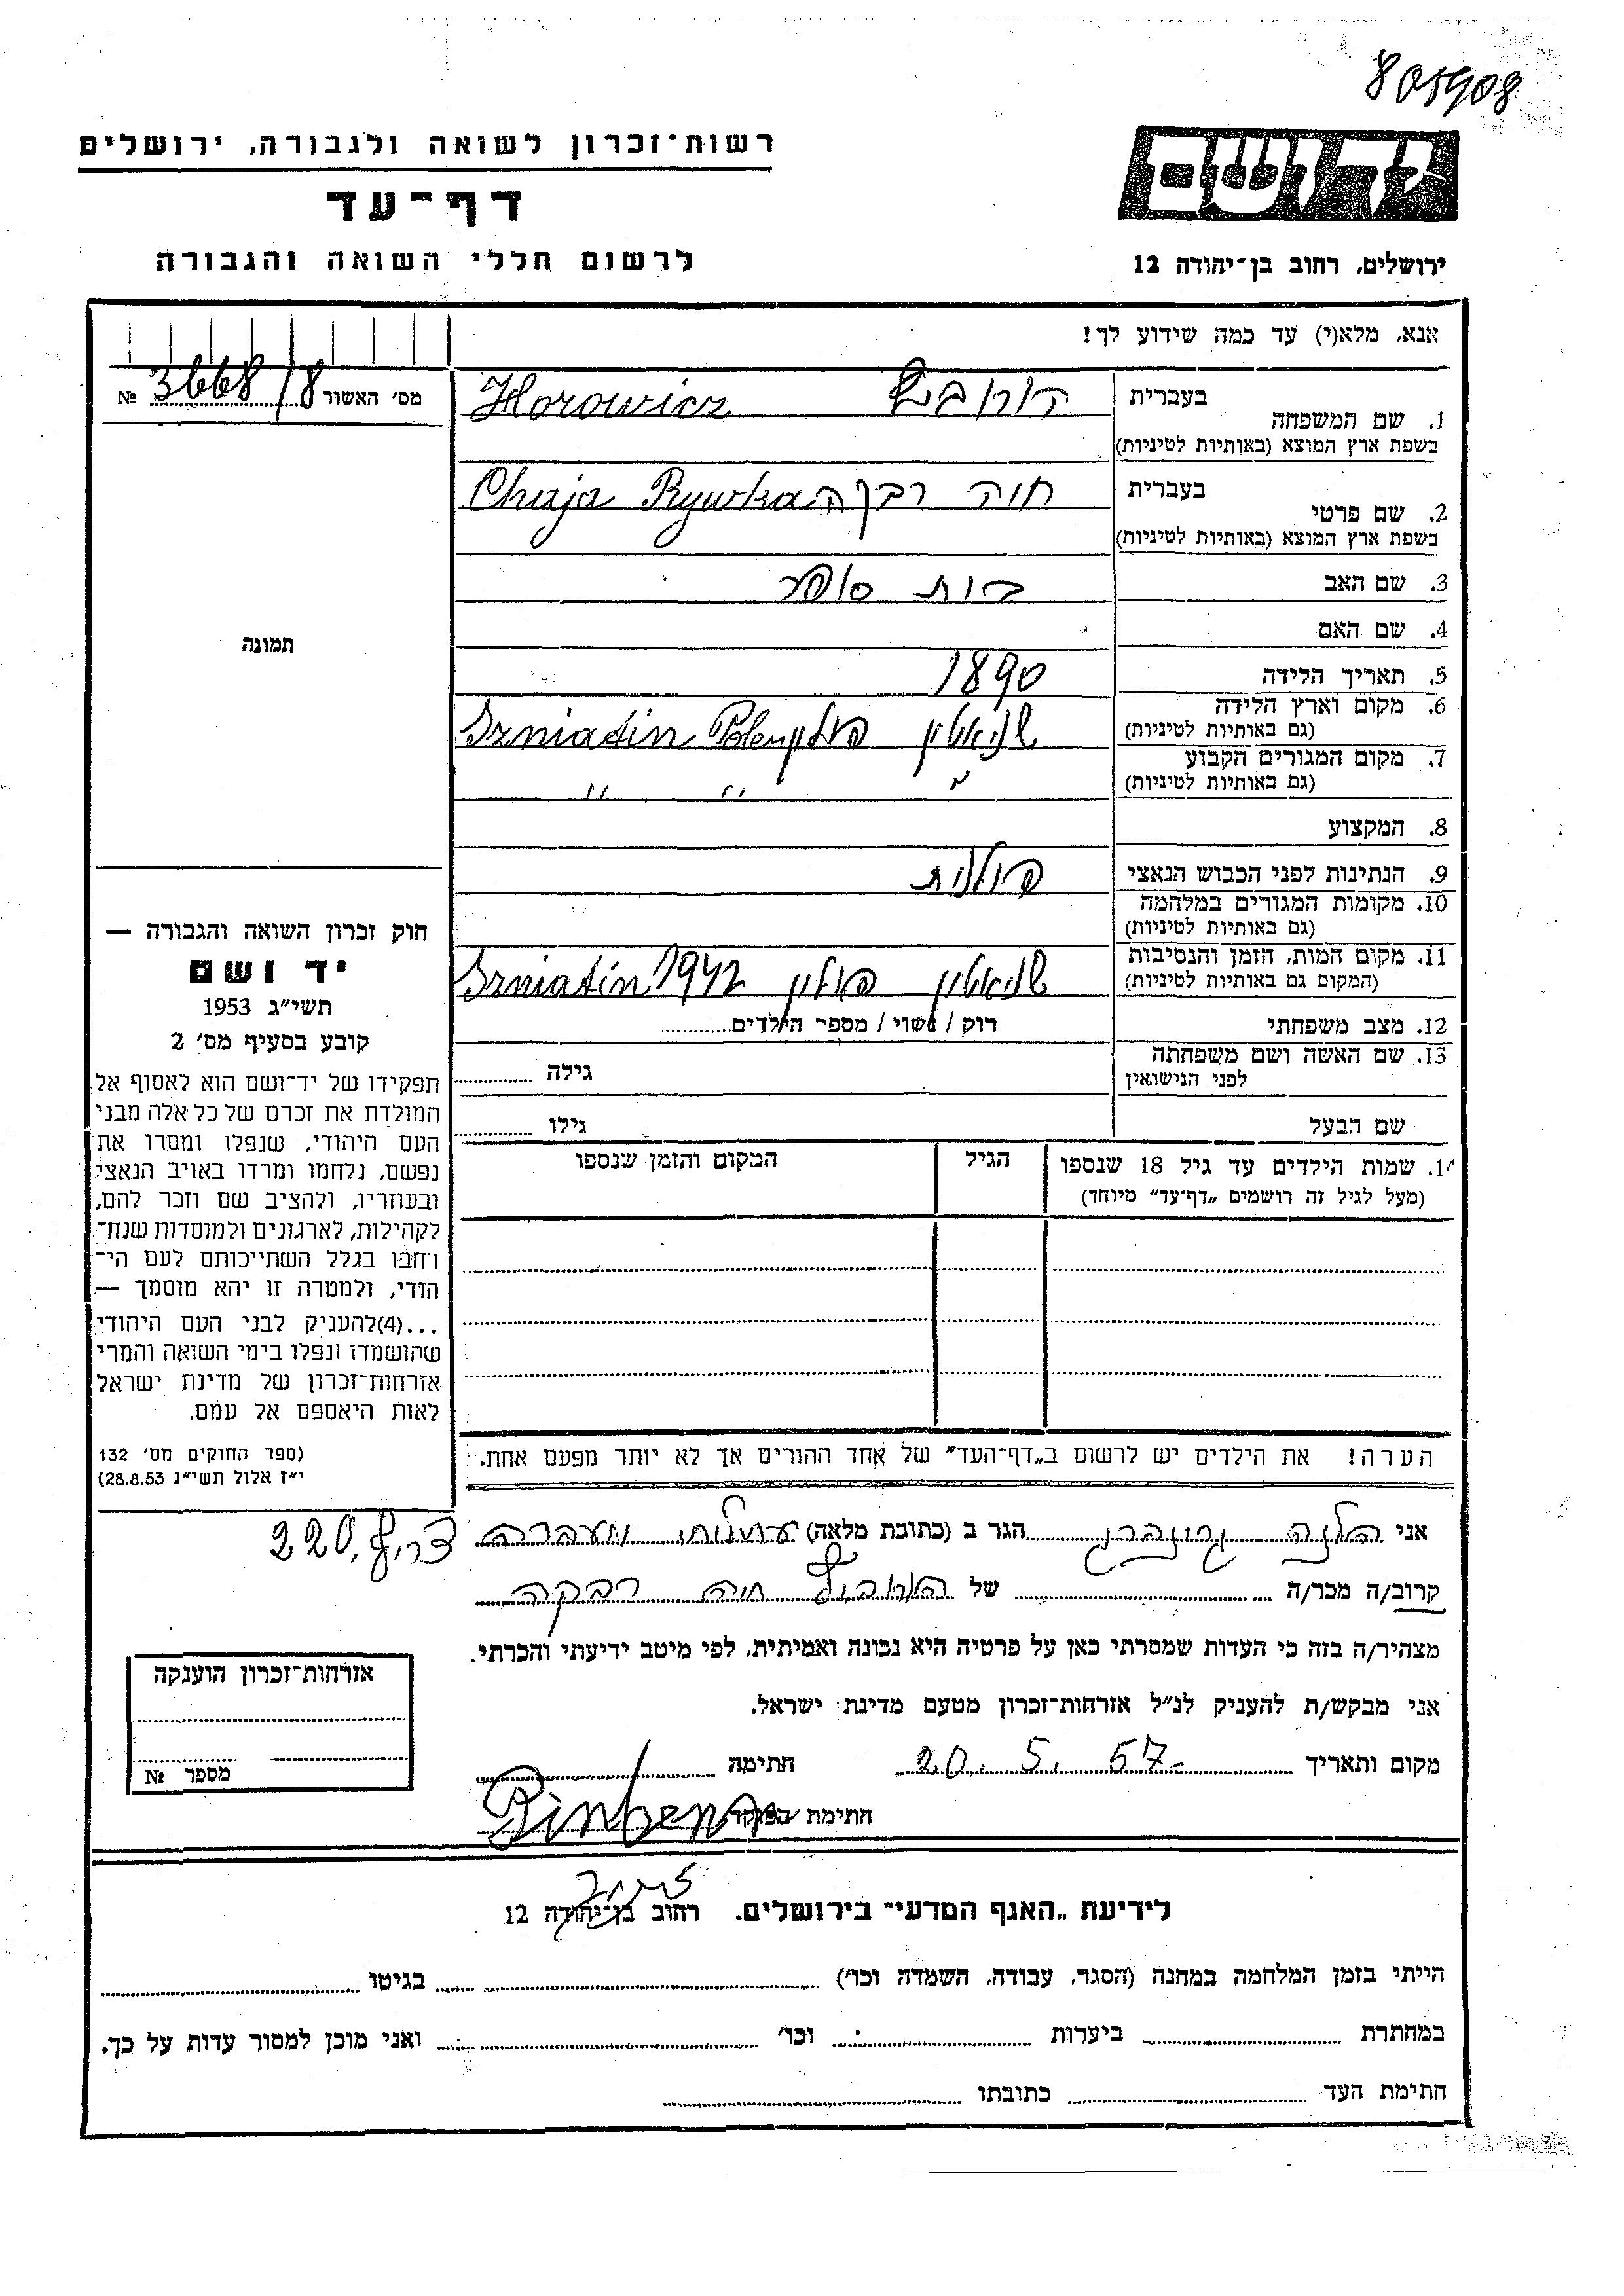 805908
יד ושם
רשות־זכרון לשואה ולגבורה, ירושלים
דף־עד
לרשום חללי השואה והגבורה
ירושלים, רחוב בן־יהודה 12
אנא, מלא(י) עד כמה שידוע לך!
מס׳ האשור 3668/8 №
1. שם המשפחה
בעברית
בשפת ארץ המוצא (באותיות לטיניות)
Horowicz
2. שם פרטי
בעברית
בשפת ארץ המוצא (באותיות לטיניות)
חיה רבקה Chaja Rywka
3. שם האב
4. שם האם
5. תאריך הלידה
1890
6. מקום וארץ הלידה
(גם באותיות לטיניות)
שניאטין פולין Szniatin
7. מקום המגורים הקבוע
(גם באותיות לטיניות)
" " "
8. המקצוע
9. הנתינות לפני הכבוש הנאצי
פולנית
10. מקומות המגורים במלחמה
(גם באותיות לטיניות)
11. מקום המות, הזמן והנסיבות
(המקום גם באותיות לטיניות)
שניאטין פולין 1942 Szniatin
12. מצב משפחתי
רוק / נשוי / מספר הילדים
13. שם האשה ושם משפחתה
לפני הנישואין
גילה
שם הבעל
גילו
14. שמות הילדים עד גיל 18 שנספו
(מעל לגיל זה רושמים „דף־עד״ מיוחד)
הגיל
המקום והזמן שנספו
תמונה
חוק זכרון השואה והגבורה —
יד ושם
תשי״ג 1953
קובע בסעיף מס׳ 2
תפקידו של יד־ושם הוא לאסוף אל
המולדת את זכרם של כל אלה מבני
העם היהודי, שנפלו ומסרו את
נפשם, נלחמו ומרדו באויב הנאצי
ובעוזריו, ולהציב שם וזכר להם,
לקהילות, לארגונים ולמוסדות שנח־
רחבו בגלל השתייכותם לעם הי־
הודי, ולמטרה זו יהא מוסמך —
...(4) להעניק לבני העם היהודי
שהושמדו ונפלו בימי השואה והמרי
אזרחות־זכרון של מדינת ישראל
לאות היאספם אל עמם.
(ספר החוקים מס׳ 132
י״ז אלול תשי״ג 28.8.53)
הערה! את הילדים יש לרשום ב„דף־העד״ של אחד ההורים אך לא יותר מפעם אחת.
אני הלנה הגר ב (כתובת מלאה) עתלית מעברה צריף 220
קרוב/ה מכר/ה של הורוביץ חיה רבקה
מצהיר/ה בזה כי העדות שמסרתי כאן על פרטיה היא נכונה ואמיתית, לפי מיטב ידיעתי והכרתי.
אני מבקש/ת להעניק לנ״ל אזרחות־זכרון מטעם מדינת ישראל.
מקום ותאריך 20. 5. 57 חתימה
חתימת הפוקד
אזרחות־זכרון הוענקה
מספר №
לידיעת „האגף המדעי״ בירושלים. רחוב בן־יהודה 12
הייתי בזמן המלחמה במחנה (הסגר, עבודה, השמדה וכו׳) בגיטו
במחתרת ביערות וכו׳ ואני מוכן למסור עדות על כך.
חתימת העד כתובתו